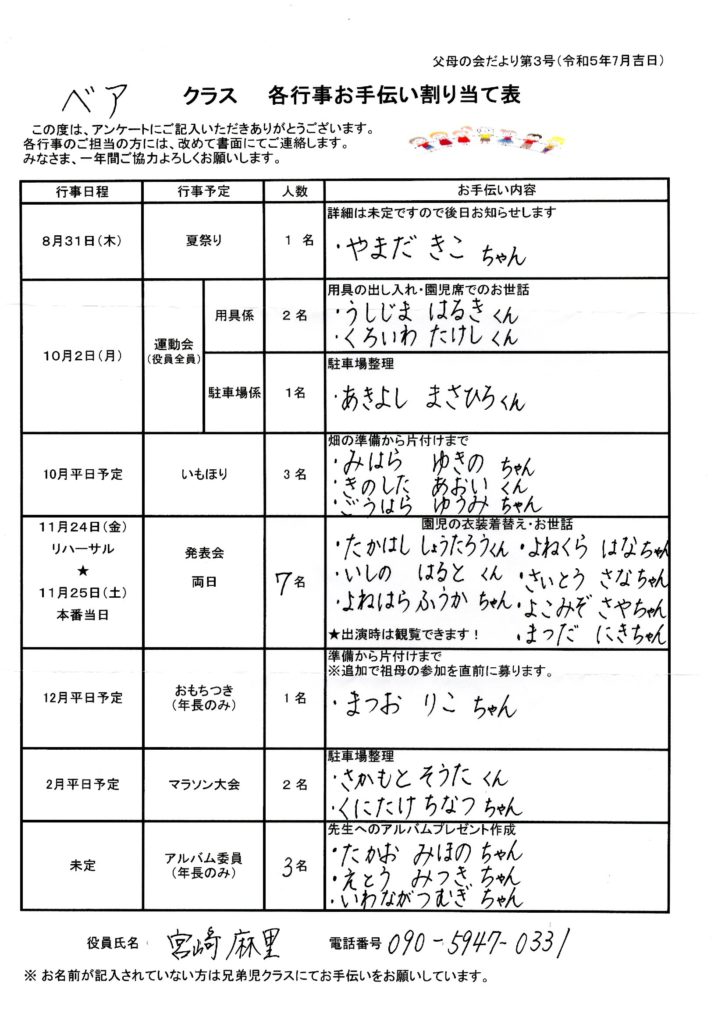 父母の会だより第3号(令和5年7月吉日)
ベア クラス 各行事お手伝い割り当て表
この度は、アンケートにご記入いただきありがとうございます。
各行事のご担当の方には、改めて書面にてご連絡します。
みなさま、一年間ご協力よろしくお願いします。
行事日程 行事予定 人数 お手伝い内容
詳細は未定ですので後日お知らせします
8月31日(木) 夏祭り 1 名
・やまだ きこ ちゃん
10月2日(月) 運動会
(役員全員)
用具係 2 名
用具の出し入れ・園児席でのお世話
・うしじま はるき くん
・くろいわ たけし くん
駐車場係 1名
駐車場整理
・あきよし まさひろくん
10月平日予定 いもほり 3 名
畑の準備から片付けまで
・みはら ゆきの ちゃん
・きのした あおい くん
・ごうはら ゆうみ ちゃん
11月24日(金)
リハーサル
★
11月25日(土)
本番当日
発表会
両日
7 名
園児の衣装着替え・お世話
・たかはし しょうたろうくん ・よねくら はなちゃん
・いしの はると くん ・さいとう さなちゃん
・よねはら ふうか ちゃん ・よこみぞ さやちゃん
★出演時は観覧できます! ・まつだ にきちゃん
12月平日予定 おもちつき
(年長のみ)
1 名
準備から片付けまで
※追加で祖母の参加を直前に募ります。
・まつお りこ ちゃん
2月平日予定 マラソン大会 2 名
駐車場整理
・さかもと そうた くん
・くにたけ ちなつ ちゃん
未定 アルバム委員
(年長のみ)
3 名
先生へのアルバムプレゼント作成
・たかお みほの ちゃん
・えとう みつき ちゃん
・いわなが つむぎ ちゃん
役員氏名 宮崎 麻里 電話番号 090-5947-0331
※ お名前が記入されていない方は兄弟児クラスにてお手伝いをお願いしています。